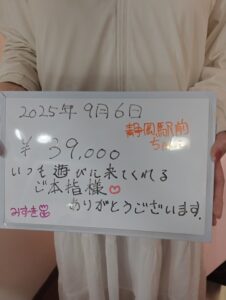 2025年9月6日
静岡駅前
ちゃんこ
¥39,000
いつも遊びに来てくれる
ご本指様♡
みすき
ありがとうございます。